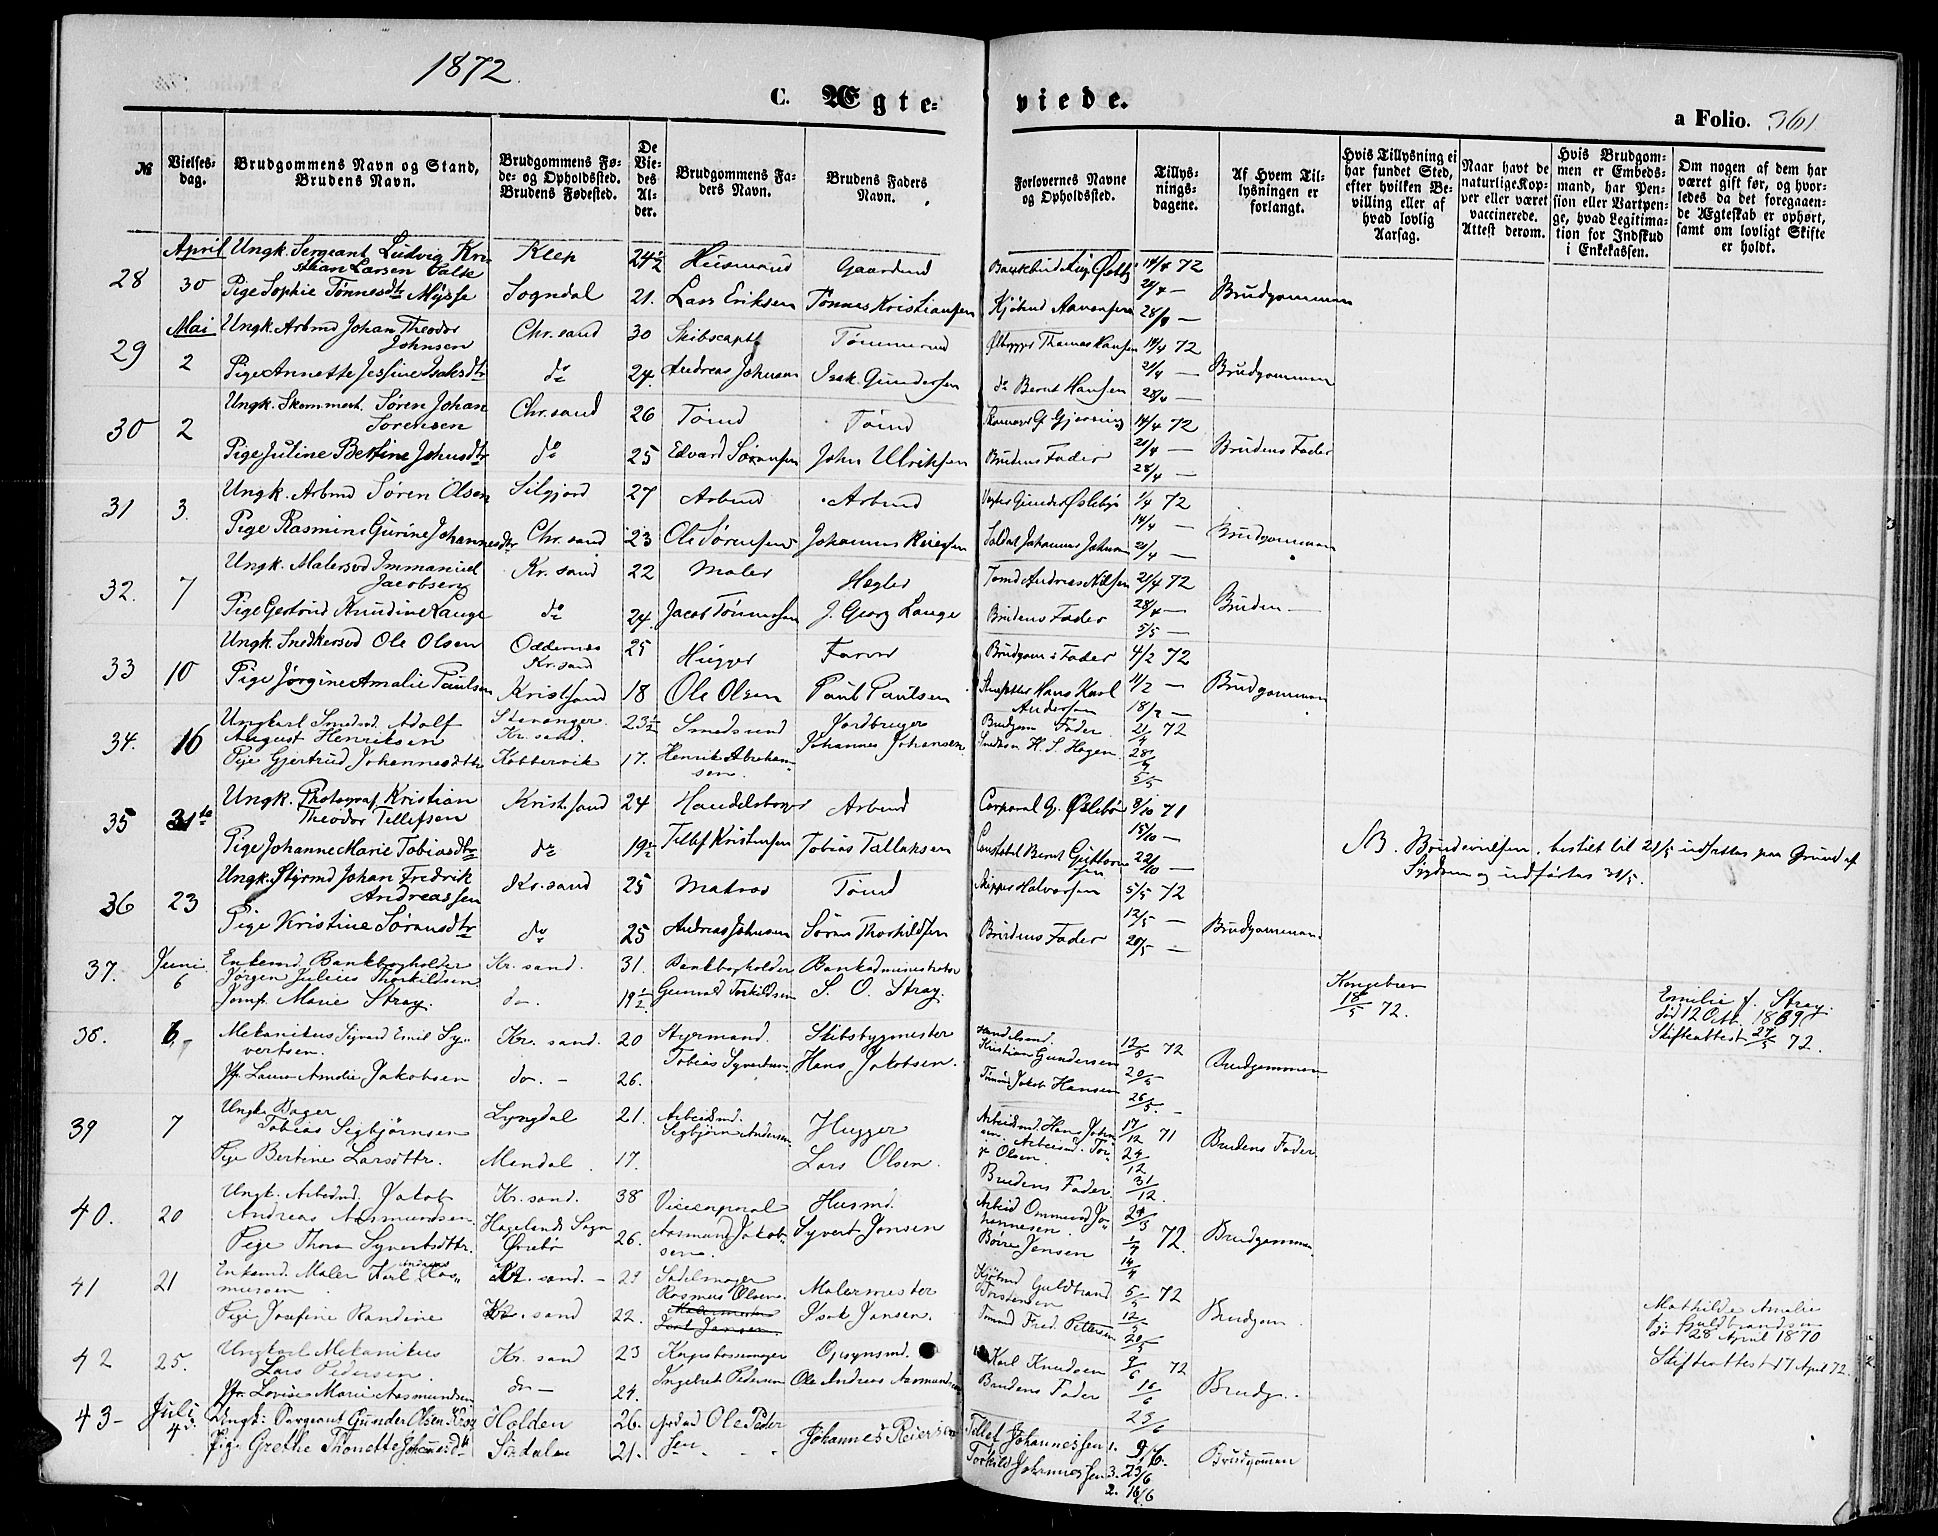 1872.
C. Ægte- viede.
a Folio. 361
№
Vielses-
dag.
Brudgommens Navn og Stand,
Brudens Navn.
Brudgommens Fø-
de- og Opholdssted.
Brudens Fødested.
De
Vie-
des
Al-
der.
Brudgommens Fa-
ders Navn.
Brudens Faders
Navn.
Forlovernes Navne
og Opholdssted.
Tillys-
nings-
dagene.
Af Hvem Til-
lysningen er
forlangt.
Hvis Tillysning ei
har fundet Sted,
efter hvilken Be-
villing eller af
hvad lovlig
Aarsag.
Naar havt de
naturlige Kop-
per eller været
vaccinerede.
Attest derom.
Hvis Brudgom-
men er Embeds-
mand, har Pen-
sion eller Vartpen-
ge, hvad Legitima-
tion for Indskud
i Enkekassen.
Om nogen af dem har
været gift før, og hvor-
ledes da det foregaaen-
de Ægteskab er ophørt,
samt om lovligt Skifte
er holdt.
28 April 30 Ungk. Sergeant Ludvig Kri
stian Larsen Valse Klep 24½ Husmand Gaardmd 14/4 72
Pige Sophie Tønnesdtr Mysse Sogndal 21. Lars Eriksen Tønnes Kristiansen 21/4 — Brudgommen
28/4 —
29 Mai 2 Ungk. Arbmd Johan Theodor
Johnsen Chr.sand 30 Skibscapt Tømmermd Thomas Hansen 14/4 72
Pige Annette Jessine Isaksdtr do 24. Andreas Johnsen Isak Gundersen do Bernt Hansen 21/4 — Brudgommen
28/4 —
30 2 Ungk. Skommest. Søren Johan
Sørensen Chr.sand 26 Tømd Tømd Gjerning 14/4 72
Pige Juline Bertine Johnsdtr do 25 Edvard Sørensen John Ulriksen Brudens Fader 21/4 — Brudens Fader
28/4 —
31 3. Ungk. Arbmd Søren Olsen Silgjord 27 Arbmd Arbmd Gunder Øslebø 1/4 72
Pige Rasmine Gurine Johannesdtr Chr.sand 23 Ole Sørensen Johannes Reiersen Soldat Johannes Johnsen 14/4 — Brudgommen
21/4 —
32. 7 Ungk. Malersvd Immanuel
Jacobsen Kr.sand 22 Maler Hegler Tømd Andreas Nilsen 21/4 72
Pige Gertrud Knudine Lange do 24. Jacob Tønnesen J. Georg Lange Brudens Fader 28/4 — Bruden —
5/5 —
33 10 Ungk. Snedkersvd Ole Olsen Oddernes
Kr.sand 25 Hugger Farver Brudgoms Fader 4/2 72
Pige Jørgine Amalie Paulsen Kristsand 18 Ole Olsen Paul Paulsen Hans Karl
Andersen 11/2 — Brudgommen
18/2 —
34. 16 Ungkarl Smedsvd. Adolf
August Henriksen Stavanger
Kr.sand. 23½ Smedsvend Jordbruger Brudgom Fader 21/4 72
Pige Gjertrud Johannesdttr Kobbervik 17. Henrik Abraham-
sen. Johannes Johansen H. S. Hagen 28/4
5/5
35 31te Ungk. Photograf Kristian
Theodor Tellefsen Krist.sand 24 Handelsborger Arbmd Corporal G. Øslebø 8/10 71
Pige Johanne Marie Tobiasdtr do 19½ Tellef Kristensen Tobias Tallaksen Bernt Guttorm
sen 15/10 —
22/10 —
NB. Brudevielsen, bestilt til 21/5 udsattes paa Grund af
Sygdom og udførtes 31/5.
36 23 Ungk. Styrmd Johan Fredrik
Andreassen Kr.sand 25 Matros Tømd Skipper Halvorsen 5/5 72
Pige Kristine Sørensdtr do 25 Andreas Johnsen Søren Thorkildsen Brudens Fader 12/5 — Brudgommen.
20/5 —
37. Juni 6 Enkemd. Bankbogholder
Jørgen Julius Thorkildsen Kr.sand. 31. Bankbogholder Bankadministrator
Jomf. Marie Stray. do. 19½ Gunvald Torkildsen S. O. Stray.
Kongebrev
18/5 72.
Emilie f. Stray.
død 12 Octb. 1869.
Skifteattest 27/5 72.
38. 6. Mekanikus Sigvard Emil Sy-
vertsen. Kr. sand. 20 Styrmand. Skibsbygmester Handelsmd.
Kristian Gundersen 12/5 72
Jfr. Laura Amalie Jakobsen do. — 26. Tobias Syvertsen Hans Jakobsen. Tømmd Jakob Hansen 20/5 Brudgommen
26/5. —
39 7 Ungk. Bager
Tobias Sigbjørnsen Lyngdal 21. Arbeidsmd.
Sigbjørn Andersen Hugger Arbeidsmd. Hans Johan-
sen. Arbeidsmd. Tor-
r Olsen. 17/12 71 Brudens Fader.
Pige Bertine Larsdttr. Mandal. 17. Lars Olsen. Brudens Fader 24/12
31/12.
40. 20 Ungk. Arbedmd. Jakob
Andreas Aasmundsen. Kr.sand. 38 Vicecorporal Husmd. Arbeid Ommund Jo-
hannesen. 24/3
Pige Thora Syvertsdttr. Hægelands Sogn
Øvrebø 26. Aasmund Jakob-
sen. Syvert Jensen Børre Jensen 1/4 72. Brudgommen
14/4
41 21 Enkemd. Maler Karl Andreas Ras-
mussen Kr. sand. — 29 Sadelmager
Rasmus Olsen. Malermester Kjøbmd Guldbrand
Torstensen 5/5 72
Pige Josefine Randine Kr. sand 22. Isak Jansen. Tømmd Fred. Pettersen 12/5 Brudgom.
20/5
Mathilde Amalie
f. Guldbrandsen
28 April 1870
Skifteattest 17 April 72.
42 25. Ungkarl Mekanikus
Lars Pedersen. Kr. sand 23 Korpsbøssemager Opsynsmd. Karl Knudsen 9/6 72
Jfr. Lovise Marie Aasmundsen do — 24. Ingebret Pedersen Ole Andreas Aasmundsen Brudens Fader 16/6 Brudg.
23/6
43- Juli 4 Ungk: Sargeant Gunder Olsen Holden 26. Ole Peder
sen Johannes Reiersen Tellef Johannessen 1. 9/6.
Pige Grethe Thonette Johannesdtr Sirdalen 21. Torkild Johannessen 3. 23/6 Brudgommen
2. 16/6